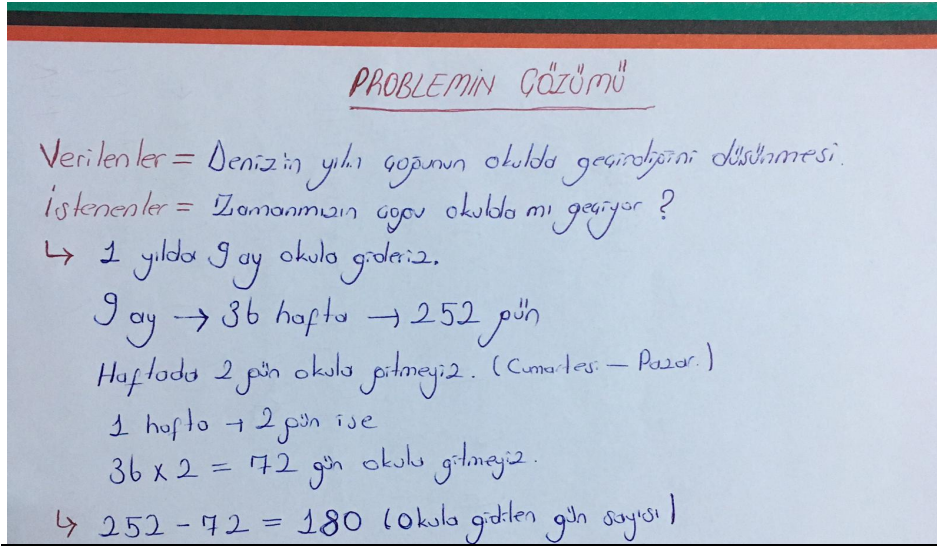 PROBLEMİN ÇÖZÜMÜ
Verilenler = Deniz'in yılın çoğunun okulda geçirdiğini düşünmesi.
İstenenler = Zamanımızın çoğu okulda mı geçiyor ?
↳ 1 yılda 9 ay okula gideriz.
9 ay → 36 hafta → 252 gün
Haftada 2 gün okula gitmeyiz. (Cumartesi – Pazar.)
1 hafta → 2 gün ise
36 x 2 = 72 gün okula gitmeyiz.
↳ 252 - 72 = 180 (Okula gidilen gün sayısı)